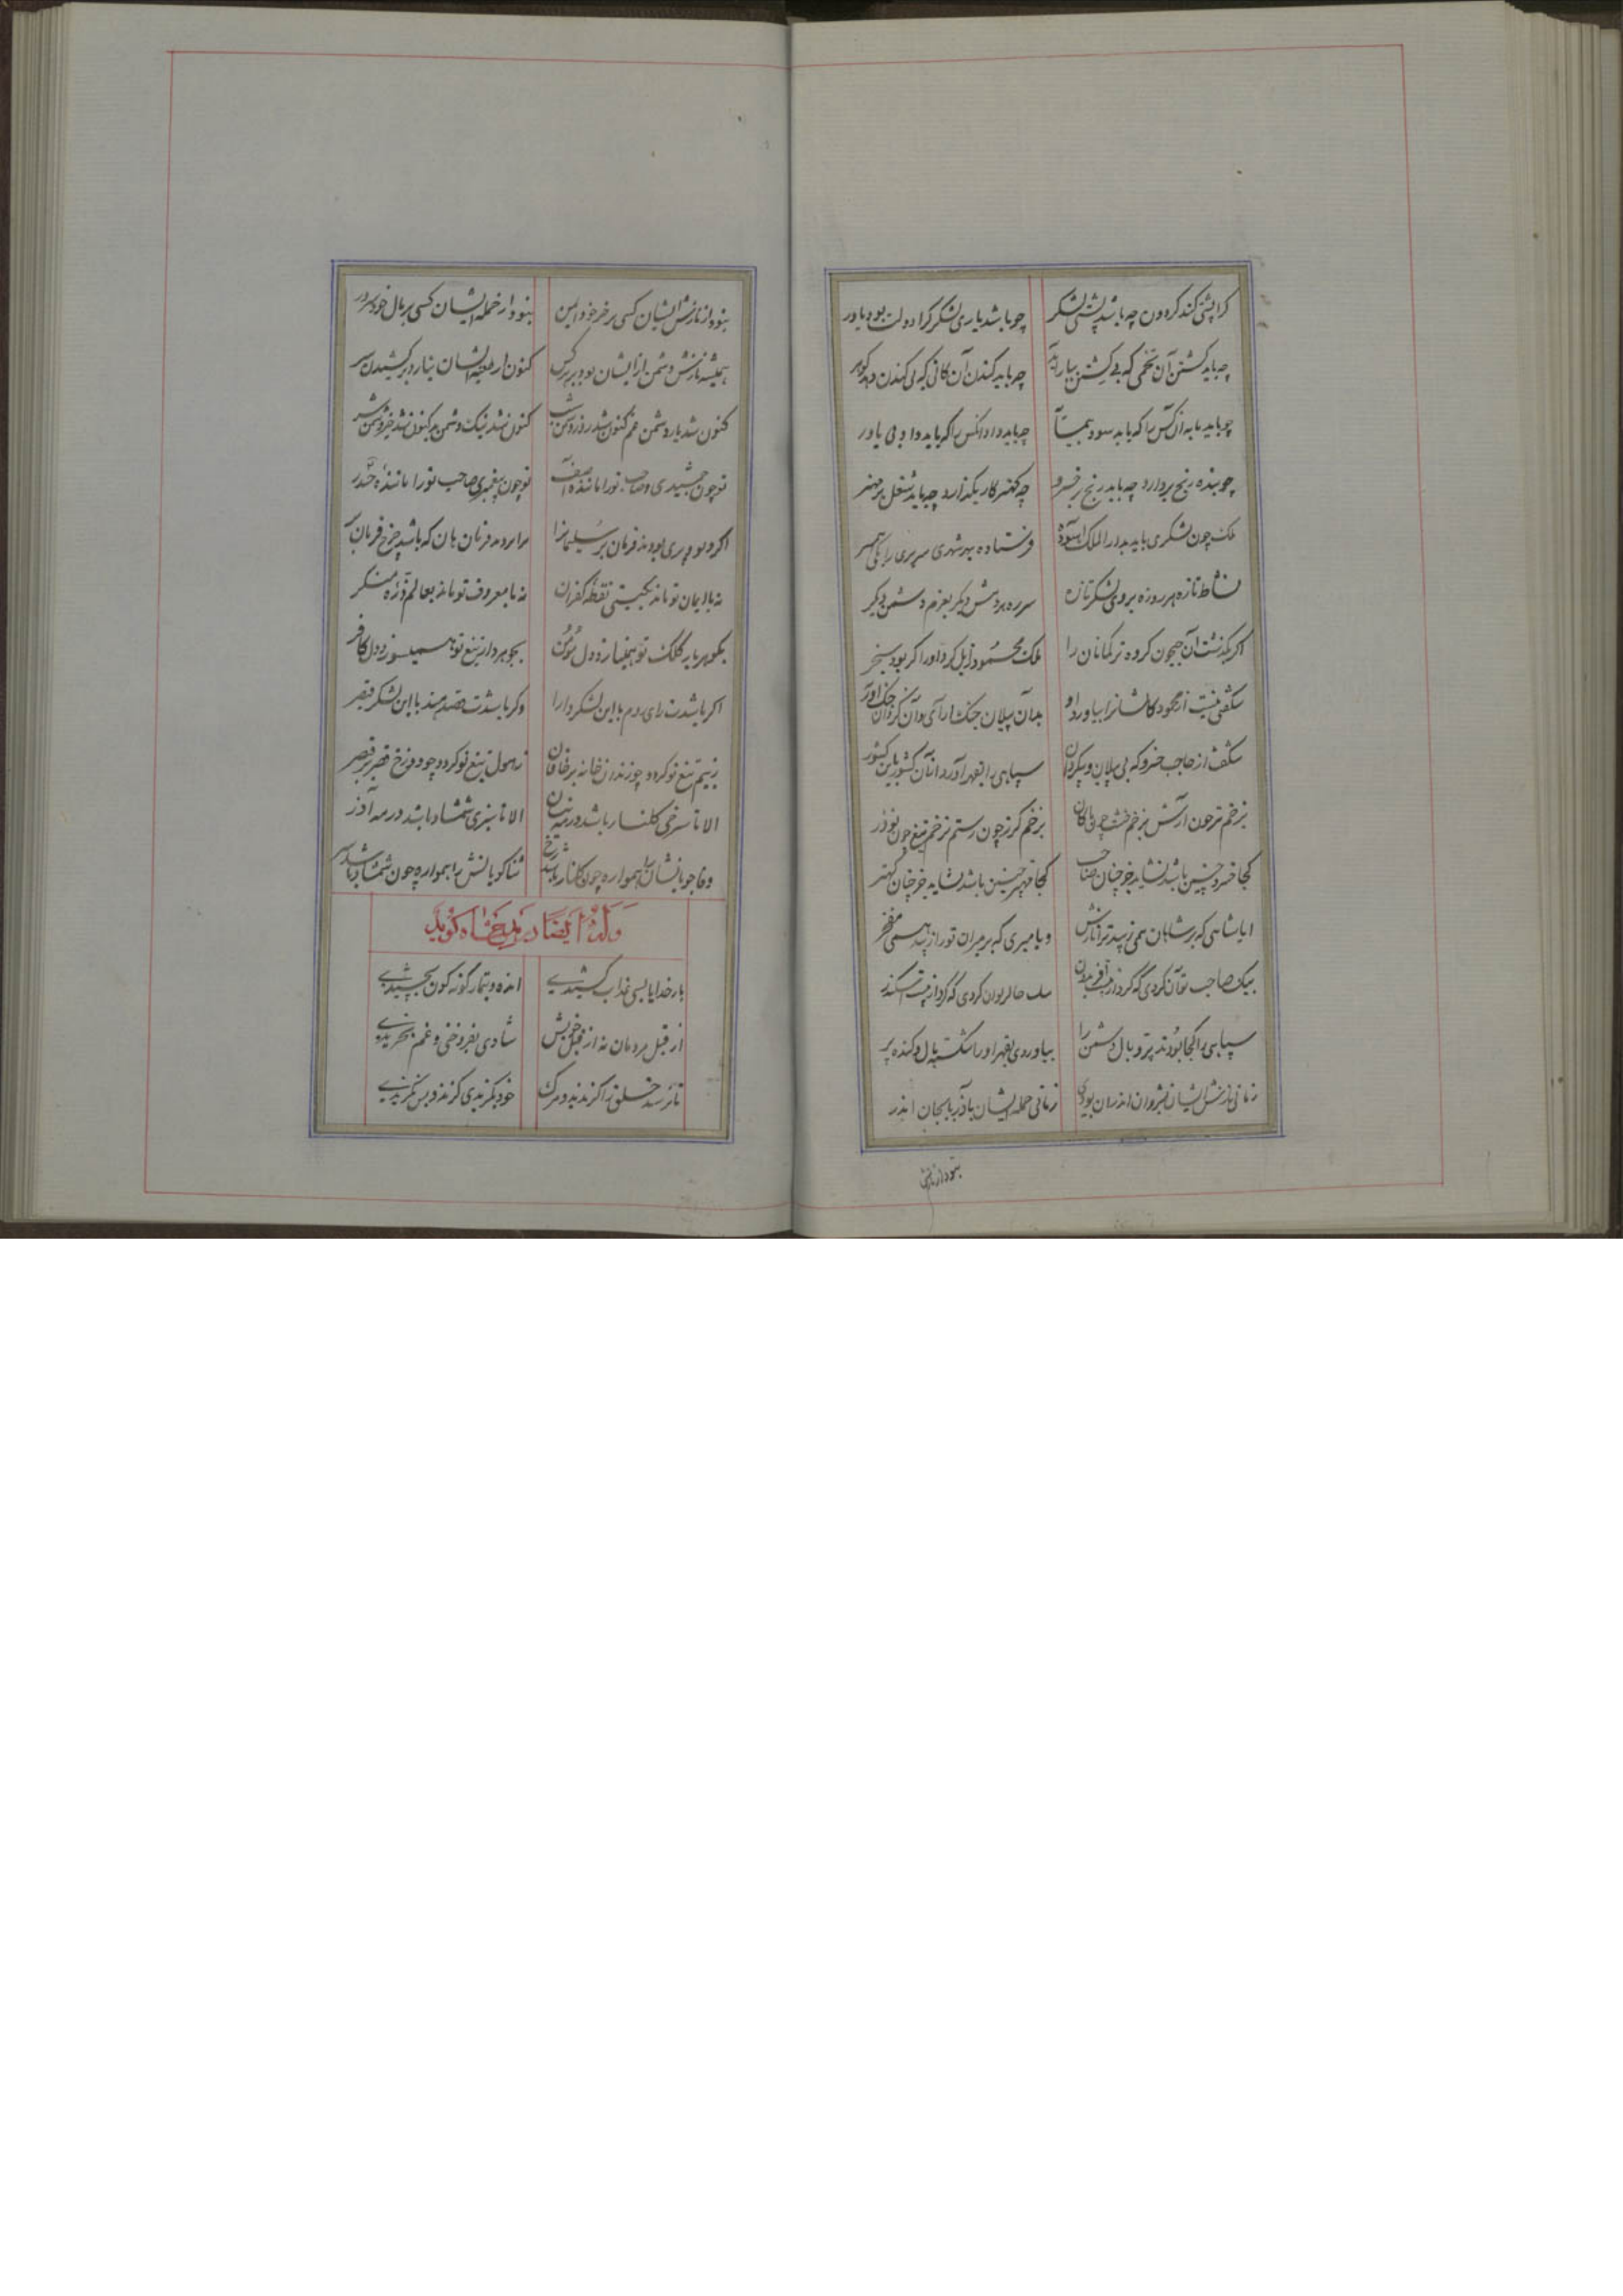 کرا پشتی کند گردون چه باشد پشتی لشکر چو باشد یاری لشکر کرا دولت بود یاور
چه باید کشتن آن تخمی که بی کشتن ببار آید چه باید کندن آن کانی که بی کندن دهد گوهر
چو باید مایه آن کس را که یابد سود چه باید داد آنکس را که یابد داد بی یاور
چو بنده رنج بردارد چه باید رنج بر خسرو چه کهتر کار بگذارد چه باید شغل بر مهتر
ملک چون لشکری باید بدار الملک آسوده فرستاده بهر شهری سریری را یکی
نشاط تازه هر روزه بروی لشکر تازه دیگر بعزم دشمن دیگر
اگر بگذشت آن جیحون گروه ترکمانان را ملک محمود زابل گرد او را گر بود سنجر
شگفتی نیست از محمود کایشانرا بیاورد او بدان پیلان جنگ آرای و آن گردان جنگ آور
شگفت از حاجب خسرو که بی پیلان و بی گردان سپاهی را بقهر آورد از آن کشور باین کشور
بزخم تیر چون آرش بزخم خشت چون بزخم گرز چون رستم بزخم تیغ چون نوذر
کجا خسرو چنین باشد نشاید جز چنان حاجب کجا مهتر چنین باشد نشاید جز چنان کهتر
ایا شاهی که بر شاهان همی زیبد ترا نازش و یا میری که بر میران تو را زیبد همی مفخر
بیک حاجب تو آن کردی که کرد از آفریدون
سپاهی را کجا بودند پر و بال دشمن را بیاوردی بقهر او را شکسته بال و کنده پر
زمانی نازش ایشان بشروان اندران بودی زمانی حمله ایشان بآذربایجان اندر
بنود از نازش
بنود از نازش ایشان کسی بر خز خود ایمن بنود از حمله ایشان کسی بر مال خود سرور
همیشه نازش دشمن از ایشان بود کنون از ایشان نیارد بر کشیدن سر
کنون شد یار دشمن غم کنون شد روز دشمن شب کنون شد نیک دشمن بد کنون شد خیر دشمن شر
تو چون جمشیدی و حاجب تو را ماننده آصف تو چون پیغمبری حاجب تو را ماننده حیدر
اگر دیو و پری بودند فرمان بر سلیمانرا که باشد چرخ فرمان بر
نه با ایمان تو ماند بگیتی نقطه کفران نه با معروف تو ماند بعالم ذره منکر
بگوهربار کلک تو دل مؤمن بجوهردار تیغ تو دل کافر
اگر باشدت رای روم با این لشکر دارا وگر باشدت قصد هند با این لشکر قیصر
ز بیم تیغ تو گردد چو زندان خانه بر خاقان ز هول تیغ تو گردد چو دوزخ قصر بر قیصر
الا تا سرخی گلنار باشد در مه نیسان الا تا سبزی شمشاد باشد در مه آذر
وفا جویانشان را همواره چون گلنار باشد رخ ثنا گویانش را همواره چون شمشاد باشد سر
وله ایضا در مدح شاه گوید
بار خدایا بسی عذاب کشیدی انده و تیمار گونه گون بچشیدی
از قبل مردمان نه از قبل خویش شادی بفروختی و غم بخریدی
تا نرسد خلق را گزند و مرگ خود بگزیدی گزند و پس نگزیدی